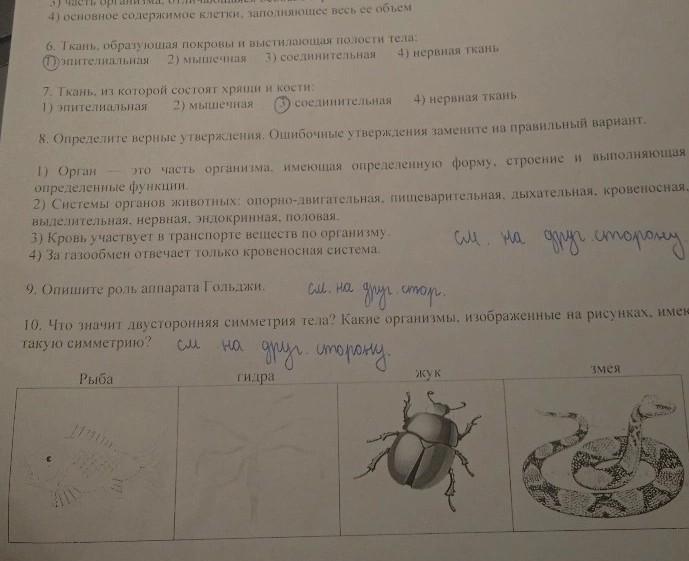 3) часть организма,
4) основное содержимое клетки, заполняющее весь ее объем
6. Ткань, образующая покровы и выстилающая полости тела:
1) эпителиальная 2) мышечная 3) соединительная 4) нервная ткань
7. Ткань, из которой состоят хрящи и кости:
1) эпителиальная 2) мышечная 3) соединительная 4) нервная ткань
8. Определите верные утверждения. Ошибочные утверждения замените на правильный вариант.
1) Орган — это часть организма, имеющая определенную форму, строение и выполняющая
определенные функции.
2) Системы органов животных: опорно-двигательная, пищеварительная, дыхательная, кровеносная,
выделительная, нервная, эндокринная, половая.
3) Кровь участвует в транспорте веществ по организму.
см. на друг. сторону
4) За газообмен отвечает только кровеносная система.
9. Опишите роль аппарата Гольджи. см. на друг. стор.
10. Что значит двусторонняя симметрия тела? Какие организмы, изображенные на рисунках, имею
такую симметрию? см на друг. сторону.
Рыба гидра жук змея